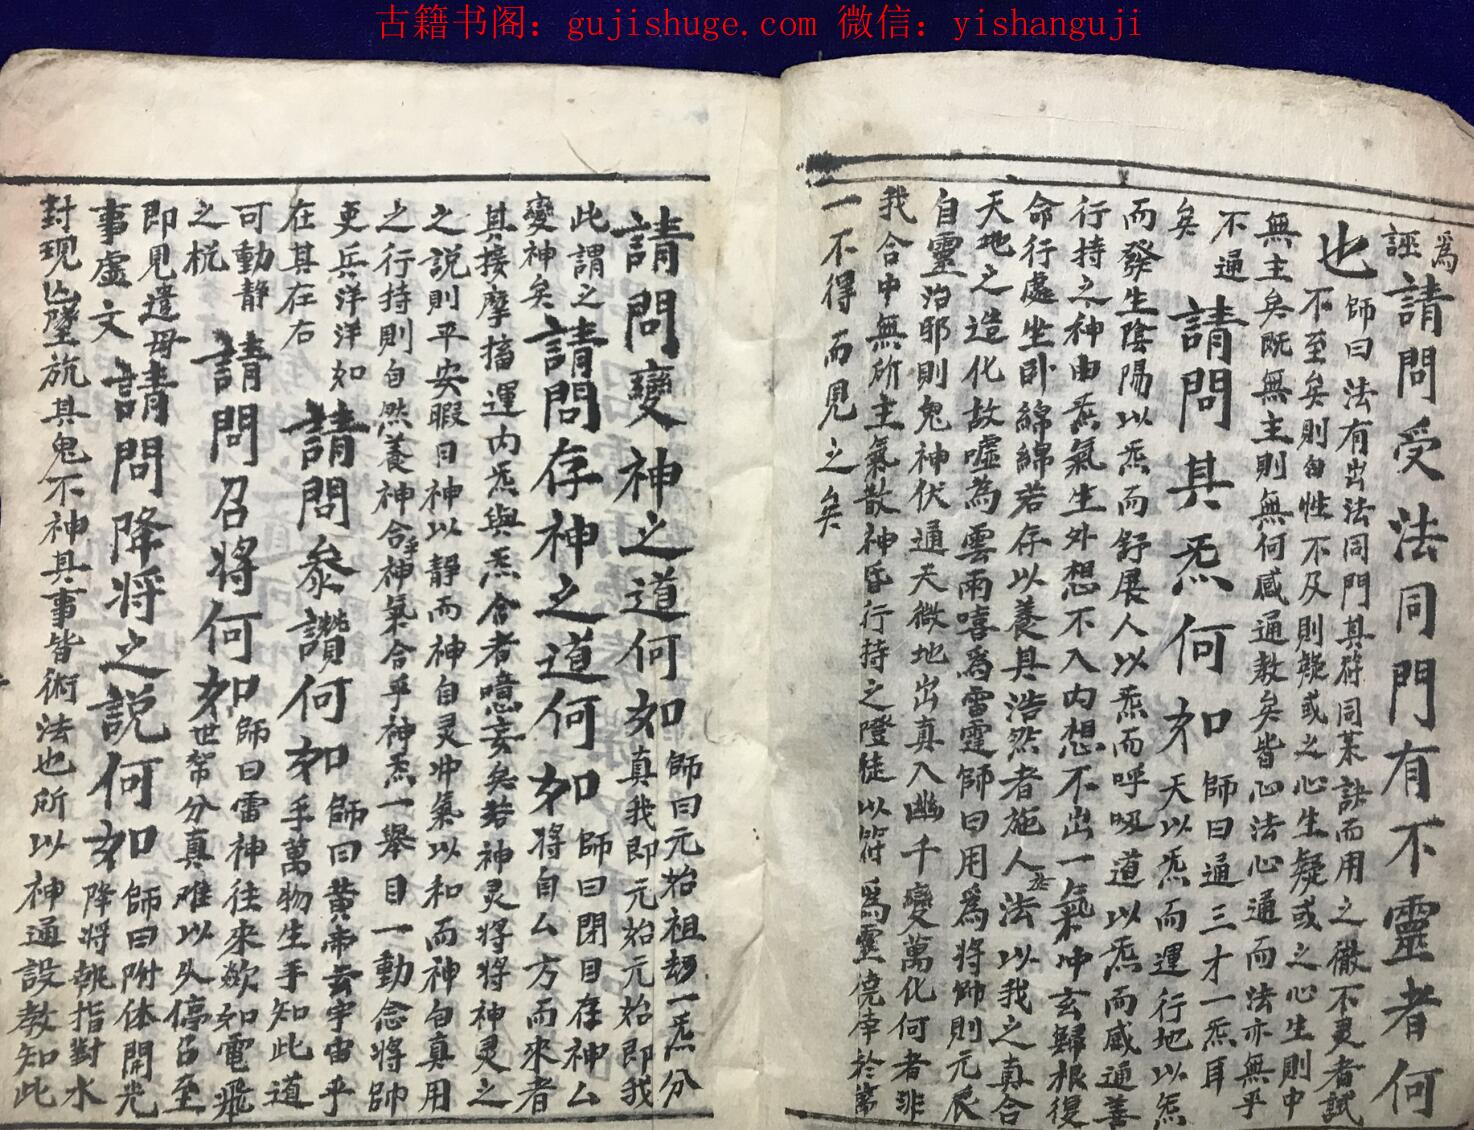 古籍书阁：gujishuge.com 微信：yishanguji
為
誣
請問受法同門有不靈者何
也
師曰法有出法同門其符同某訣而用之徹不灵者試
不至矣則自性不及則疑或之心生疑或之心生則中
無主矣既無主則無何感通教矣皆心法心通而法亦無乎
不通
矣
請問其炁何如
師曰通三才一炁耳
天以炁而運行地以炁
而發生陰陽以炁而舒展人以炁而呼吸道以炁而感通善
行持之神由炁氣生外想不入内想不出一氣冲玄歸根復
命行處坐卧綿綿若存以養其浩然者施人法以我之真合
天地之造化故噓為雲雨嘻為雷霆師曰用為將帥則元辰
自靈治邪則鬼神伏通天微地出真入幽千變萬化何者非
我合中無所主氣散神昏行持之際徒以符為靈僥倖於萬
一不得而見之矣
請問變神之道何如
師曰元始祖劫一炁分
真我即元始元始即我
此謂之
變神矣
請問存神之道何如
師曰閉目存神厶
將自厶方而來者
其接摩搐運内炁與炁合者噫妄矣若神灵将將神灵之
之説則平安暇日神以静而神自灵冲氣以和而神自真用
之行持則自然養神合乎神氣合乎神炁一舉目一動念將帥
吏兵洋洋如
在其在右
請問參讃何如
師曰黄帝云宇宙乎
手萬物生乎知此道
可動静
之梲
請問召將何如
師曰雷神往來歘如電飛
世帑分真难以久停召至
即見遣毋
事虚文
請問降將之説何如
師曰附体開光
降將執指對水
對現凶墜旂其鬼不神其事皆術法也所以神通設教知此